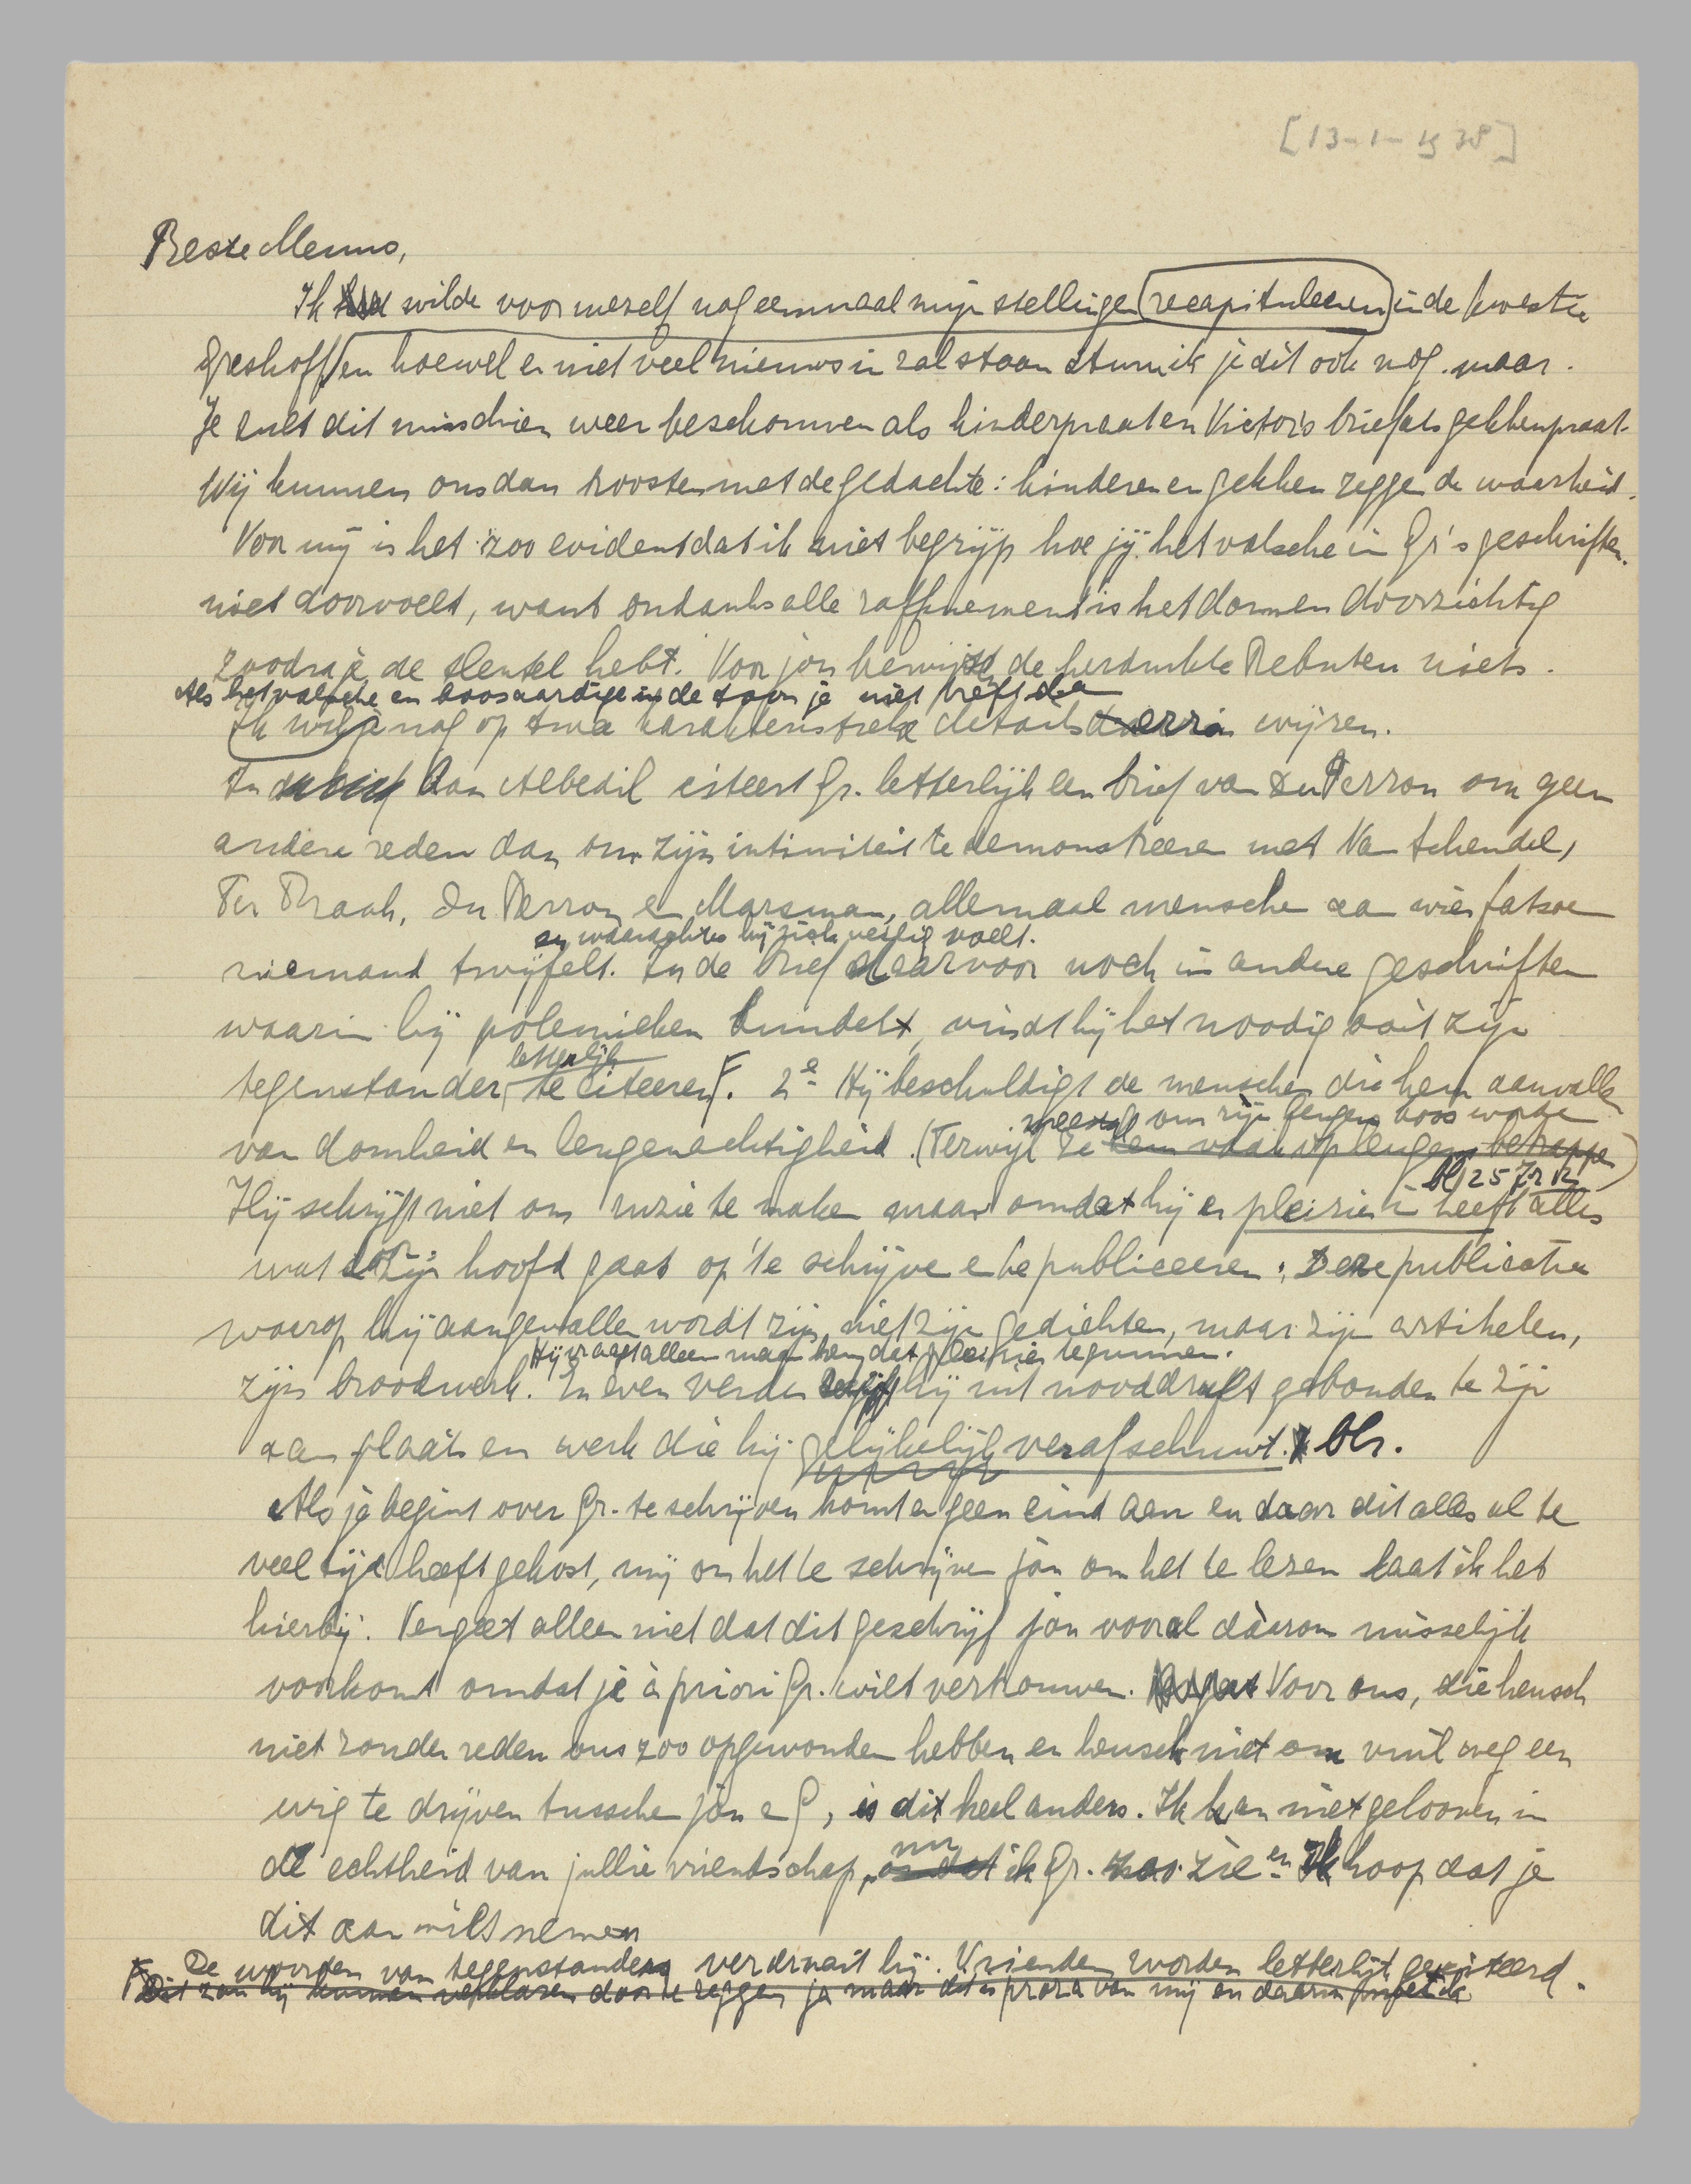 [13-1-1938]
Beste Menno,
Ik wilde voor mezelf nog eenmaal mijn stellingen recapituleeren in de kwestie
Greshoff en hoewel er niet veel nieuws in zal staan stuur ik je dit ook nog maar.
Je zult dit misschien weer beschouwen als kinderpraat en Victor's brief als gekkenpraat.
Wij kunnen ons dan troosten met de gedachte: kinderen en gekken zeggen de waarheid.
Voor mij is het zoo evident dat ik niet begrijp hoe jij het valsche in Gr's geschriften
niet doorvoelt, want ondanks alle raffinement is het dom en doorzichtig
zoodra je de sleutel hebt. Voor jou bewijzen de herdrukte Rebuten niets.
Als het valsche en boosaardige in de toon je niet treft dan
Ik wil je nog op twee karakteristieke details wijzen.
In Aan Albedil citeert Gr. letterlijk een brief van du Perron om geen
andere reden dan om zijn intimiteit te demonstreeren met Van Schendel,
Ter Braak, du Perron en Marsman, allemaal menschen aan wier fatsoen
en waarachter hij zich veilig voelt.
niemand twijfelt. In de brief daarvoor noch in andere geschriften
waarin hij polemieken bundelt, vindt hij het noodig ooit zijn
letterlijk
tegenstander te citeeren F. 2e Hij beschuldigt de menschen die hem aanvallen
meestal om zijn leugens boos worden
van domheid en leugenachtigheid. (Terwijl ze hem vaak op leugens betrappen)
bl 25
Hij schrijft niet om ruzie te maken maar omdat hij er pleizier in heeft alles
wat zijn hoofd gaat op te schrijven en te publiceeren. Deze publicaties
waarop hij aangevallen wordt zijn niet zijn gedichten, maar zijn artikelen,
Hij vraagt alleen maar hem dat pleizier te gunnen.
zijn broodwerk. En even verder hij uit nooddruft gebonden te zijn
aan plaats en werk die hij gelijkelijk verafschuwt. blz.
Als je begint over Gr. te schrijven komt er geen eind aan en daar dit alles al te
veel tijd heeft gekost, mij om het te schrijven jou om het te lezen laat ik het
hierbij. Vergeet alleen niet dat dit geschrijf jou vooral dáárom misselijk
voorkomt omdat je à priori Gr. wilt vertrouwen. Voor ons, die heusch
niet zonder reden ons zoo opgewonden hebben en heusch niet om vuil weg een
wig te drijven tusschen jou en G, is dit heel anders. Ik kan niet gelooven in
nu
de echtheid van jullie vriendschap, omdat ik Gr. zoo zie en Ik hoop dat je
dit aan wilt nemen
F De woorden van tegenstanders verdraait hij. Vrienden worden letterlijk geciteerd.
Dit zou hij kunnen verklaren door te zeggen ja maar dit is proza van mij en daarin